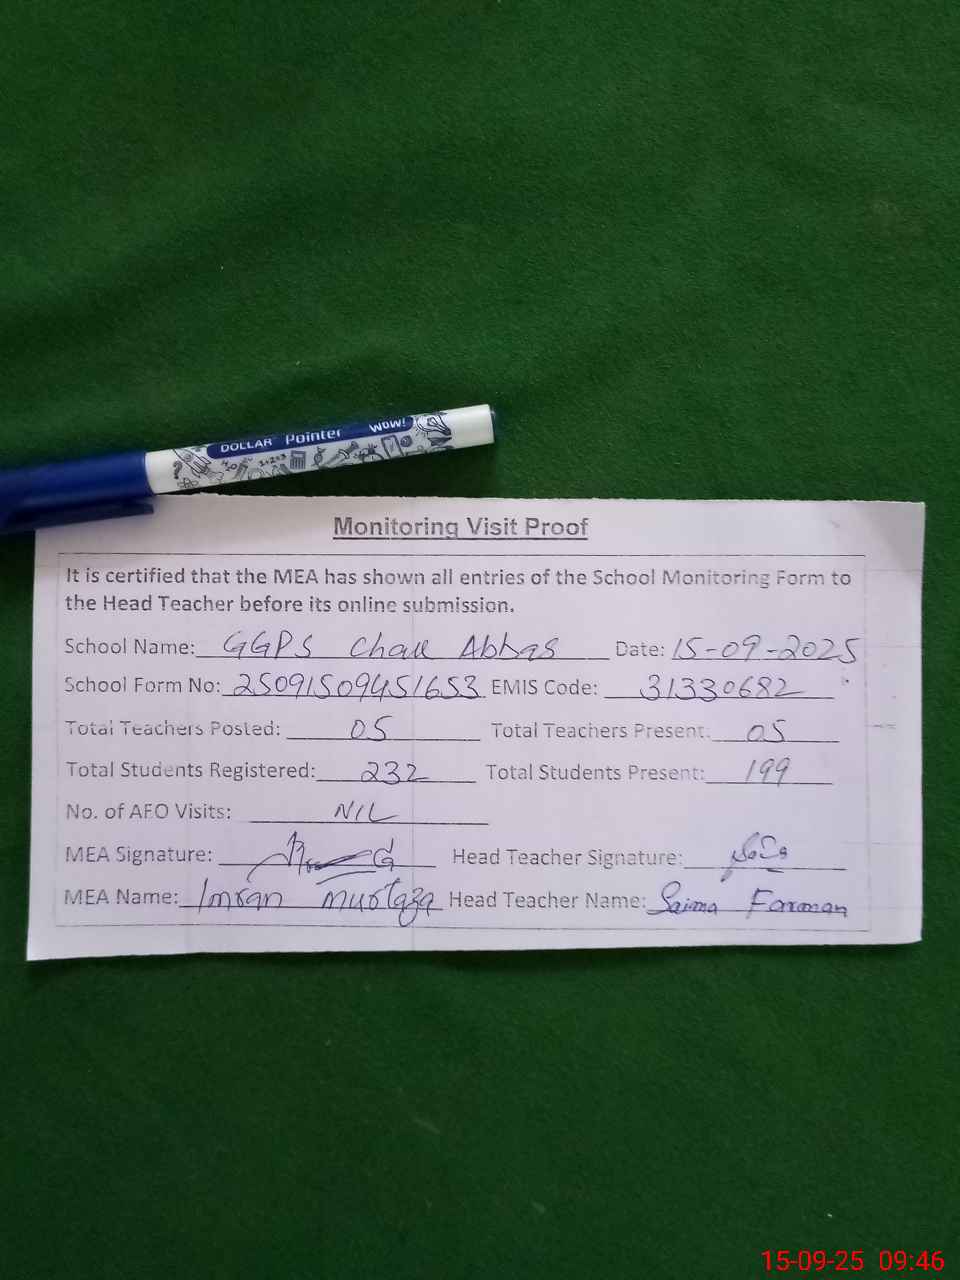 DOLLAR Pointer WOW!
?
H₂O 1+2=3
Monitoring Visit Proof
It is certified that the MEA has shown all entries of the School Monitoring Form to
the Head Teacher before its online submission.
School Name: GGPS Chak Abbas Date: 15-09-2025
School Form No: 25091509451653 EMIS Code: 31330682
Total Teachers Posted: 05 Total Teachers Present: 05
Total Students Registered: 232 Total Students Present: 199
No. of AEO Visits: NIL
MEA Signature: Head Teacher Signature:
MEA Name: Imran Murtaza Head Teacher Name: Saima Farman
15-09-25 09:46